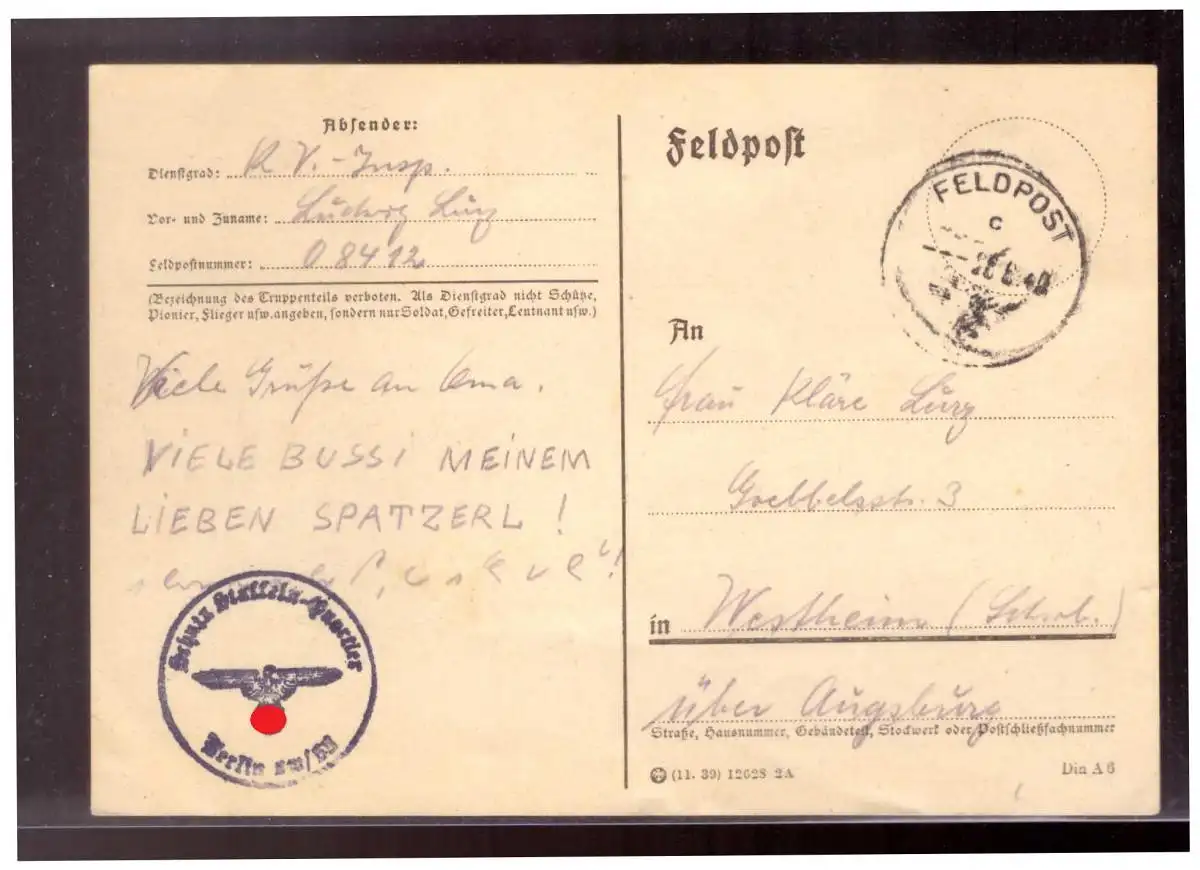 Absender:
Dienstgrad: K V.-Insp.
Vor- und Zuname: Ludwig Lurz
Feldpostnummer: 08412
(Bezeichnung des Truppenteils verboten. Als Dienstgrad nicht Schütze,
Pionier, Flieger usw. angeben, sondern nur Soldat, Gefreiter, Leutnant usw.)
Viele Grüße an Oma.
VIELE BUSSI MEINEM
LIEBEN SPATZERL!
Schutz Staffeln-Quartier
Berlin
Feldpost
FELDPOST
c
40
An
Frau Kläre Lurz
Goebbelsstr. 3
in Westheim (Schwb.)
über Augsburg
Straße, Hausnummer, Gebäudeteil, Stockwerk oder Postschließfachnummer
(11. 39) 12628 2A
Din A 6